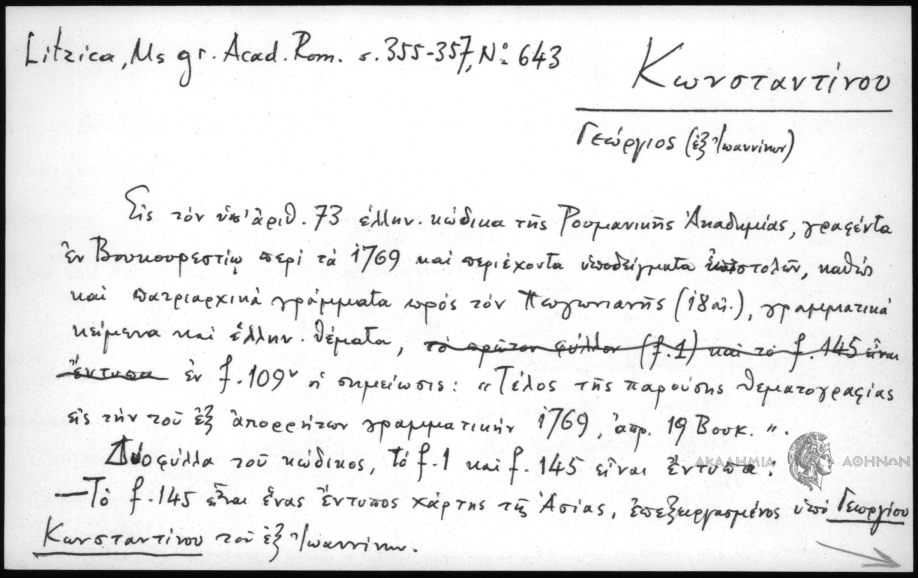 Litzica, Ms gr. Acad. Rom. s. 355-357, Nº 643
Κωνσταντίνου
Γεώργιος (ἐξ Ἰωαννίνων)
Εἰς τὸν ὑπ' ἀριθ. 73 ἑλλην. κώδικα τῆς Ρουμανικῆς Ἀκαδημίας, γραφέντα
ἐν Βουκουρεστίῳ περὶ τὰ 1769 καὶ περιέχοντα ὑποδείγματα ἐπιστολῶν, καθὼς
καὶ πατριαρχικὰ γράμματα πρὸς τὸν Πωγωνιανῆς (18 αἰ.), γραμματικὰ
κείμενα καὶ ἑλλην. θέματα, τὸ πρῶτον φύλλον (f.1) καὶ τὸ f. 145 εἶναι
ἔντυπα ἐν f. 109ᵛ ἡ σημείωσις: «Τέλος τῆς παρούσης θεματογραφίας
εἰς τὴν τοῦ ἐξ ἀπορρήτων γραμματικὴν 1769, ἀπρ. 19 Βουκ.».
Δύο φύλλα τοῦ κώδικος, τὸ f. 1 καὶ f. 145 εἶναι ἔντυπα:
ΑΚΑΔΗΜΙΑ ΑΘΗΝΩΝ
— Τὸ f. 145 εἶναι ἕνας ἔντυπος χάρτης τῆς Ἀσίας, ἐπεξειργασμένος ὑπὸ Γεωργίου
Κωνσταντίνου τοῦ ἐξ Ἰωαννίνων.